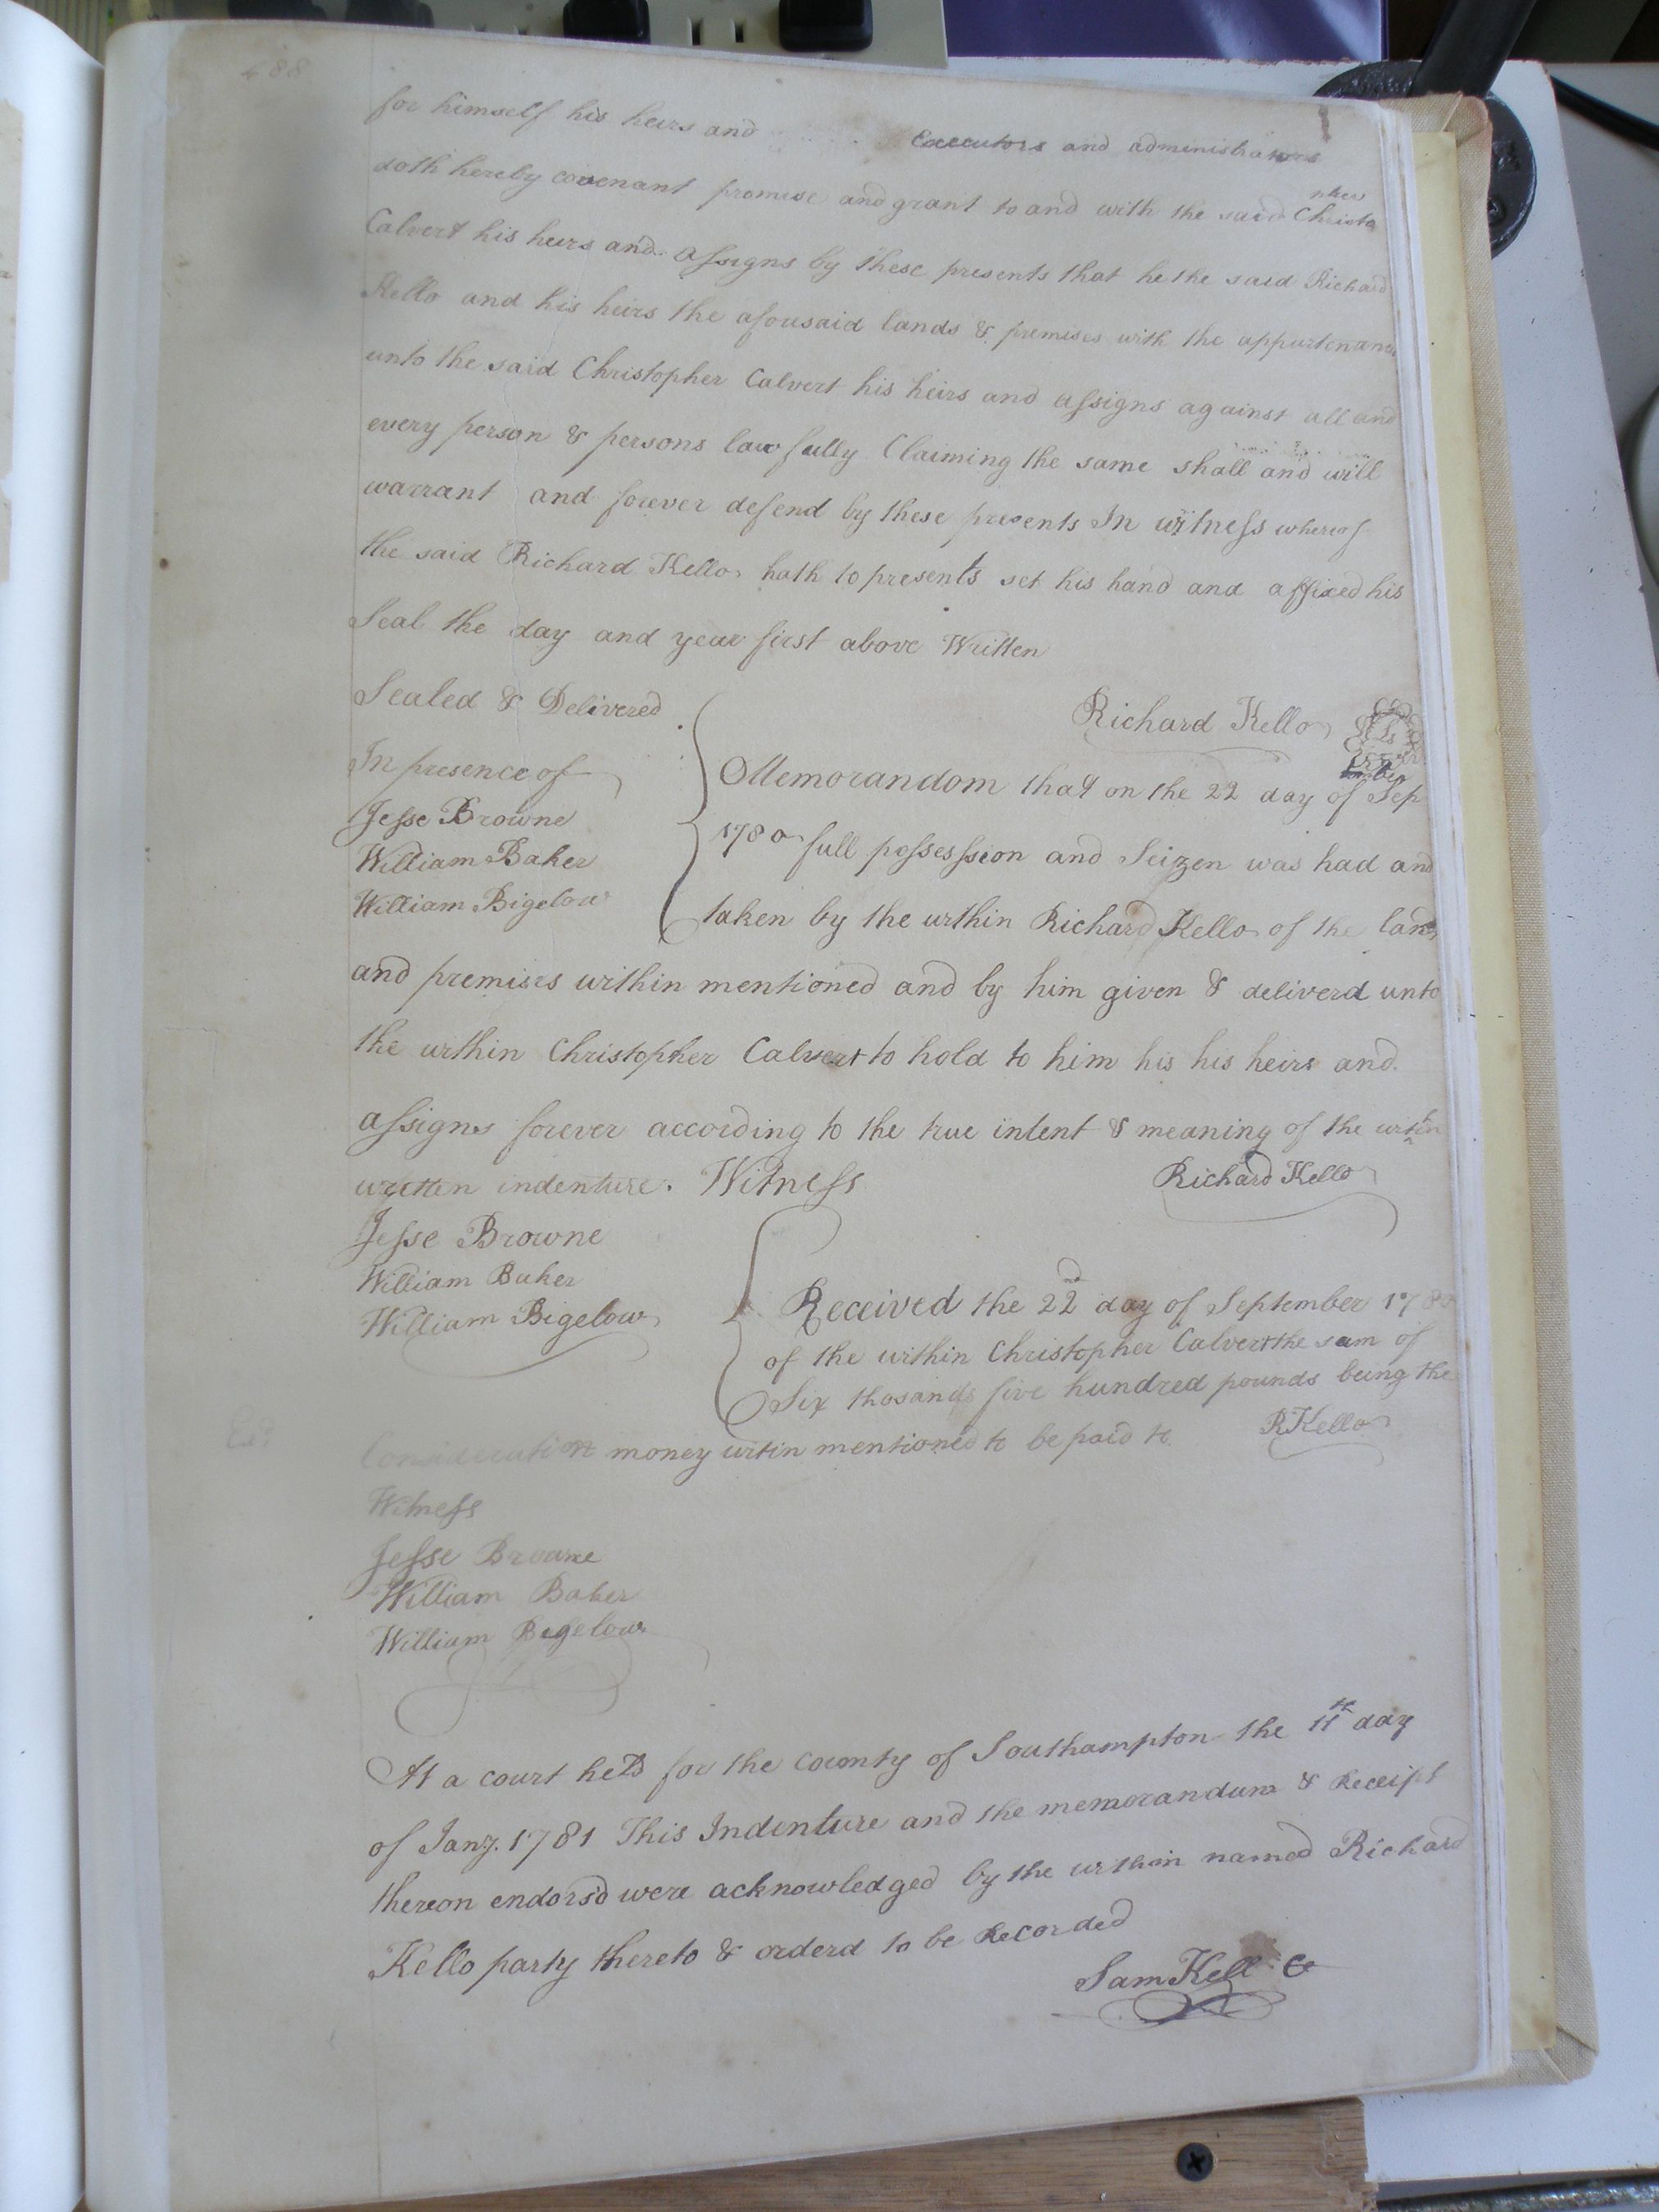 488
for himself his heirs and Executors and administrators
doth hereby covenant promise and grant to and with the said Christopher
Calvert his heirs and assigns by these presents that he the said Richard
Kello and his heirs the aforesaid lands & premises with the appurtenances
unto the said Christopher Calvert his heirs and assigns against all and
every person & persons lawfully Claiming the same shall and will
warrant and forever defend by these presents In witness whereof
the said Richard Kello hath to presents set his hand and affixed his
Seal the day and year first above Written
Sealed & Delivered
In presence of
Jesse Browne
William Baker
William Bigelow
Richard Kello
Memorandom that on the 22 day of September
1780 full possession and Seizen was had and
taken by the within Richard Kello of the lands
and premises within mentioned and by him given & deliverd unto
the within Christopher Calvert to hold to him his his heirs and
assigns forever according to the true intent & meaning of the within
written indenture. Witness Richard Kello
Jesse Browne
William Baker
William Bigelow
Received the 22nd day of September 1780
of the within Christopher Calvert the sum of
Six thosands five hundred pounds being the
Consideration money witin mentioned to be paid to RKello
Witness
Jesse Browne
William Baker
William Bigelow
At a court held for the county of Southampton the 11th day
of Jany. 1781 This Indenture and the memorandum & Receipt
thereon endorsd were acknowledged by the within named Richard
Kello party thereto & orderd to be Recorded
Sam Kell